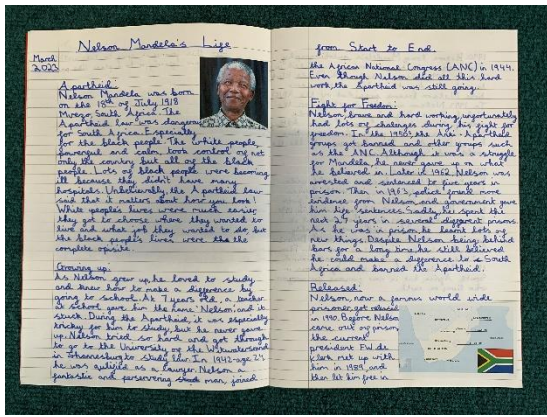 Nelson Mandela's Life
March
2023
Apartheid:
Nelson Mandela was born
on the 18th of July 1918
Mvezo, South Africa. The
Apartheid law was dangerous
for South Africa. Especially
for the black people. The white people,
powerful and calm, took control of not
only the country but all of the black
people. Lots of black people were becoming
ill because they didn't have many
hospitals. Unbelievably, the Apartheid law
said that it matters about how you look!
White peoples lives were much easier,
they got to choose where they wanted to
live and what job they wanted to do, but
the black people's lives were the the
complete opisite
Growing up:
As Nelson grew up, he loved to study
and knew how to make a difference by
going to school. At 7 years old, a teacher
at school gave him the name 'Nelson' and it
stuck. During the Apartheid, it was especially
tricky for him to study, but he never gave
up. Nelson tried so hard and got through
to go to the University of the Witwatersrand
in Johannesburg to study law. In 1942-age 24
he was qulified as a lawyer. Nelson a
fantastic and perservering man, joined
from Start to End.
the African National Congress (ANC) in 1944.
Even though Nelson did all this hard
work, the Apartheid was still going.
Fight for Freedom:
Nelson, brave and hard working, unfortunately
had lots of challenges during his fight for
freedom. In the 1950s, the Anti-Apartheid
groups got banned and other groups such
as the ANC. Although it was a struggle
for Mandela, he never gave up on what
he believed in. Later in 1962, Nelson was
arrested and sentenced to five years in
prison. Then in 1963 police found more
evidence from Nelson, and government gave
him life sentences. Sadly, he spent the
next 26 years in several different prisons.
As he was in prison, he learnt lots of
new things. Despite Nelson being behind
bars for a long time, he still believed
he could make a difference to South
Africa and banned the Apartheid.
Released:
Nelson, now a famous world wide
prisoner, got released
in 1990. Before Nelson
came out of prison,
the current
president F.W. de
Klerk met up with
him in 1989, and
then let him free in